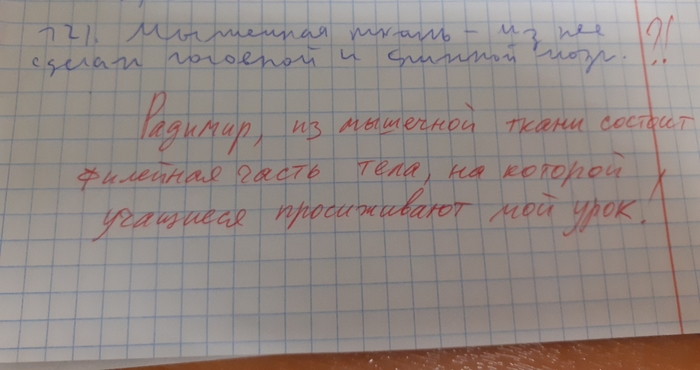 121. Мышечная ткань - из нее ?!
сделан головной и спинной мозг.
Радимир, из мышечной ткани состоит
филейная часть тела, на которой
учащиеся просиживают мой урок!